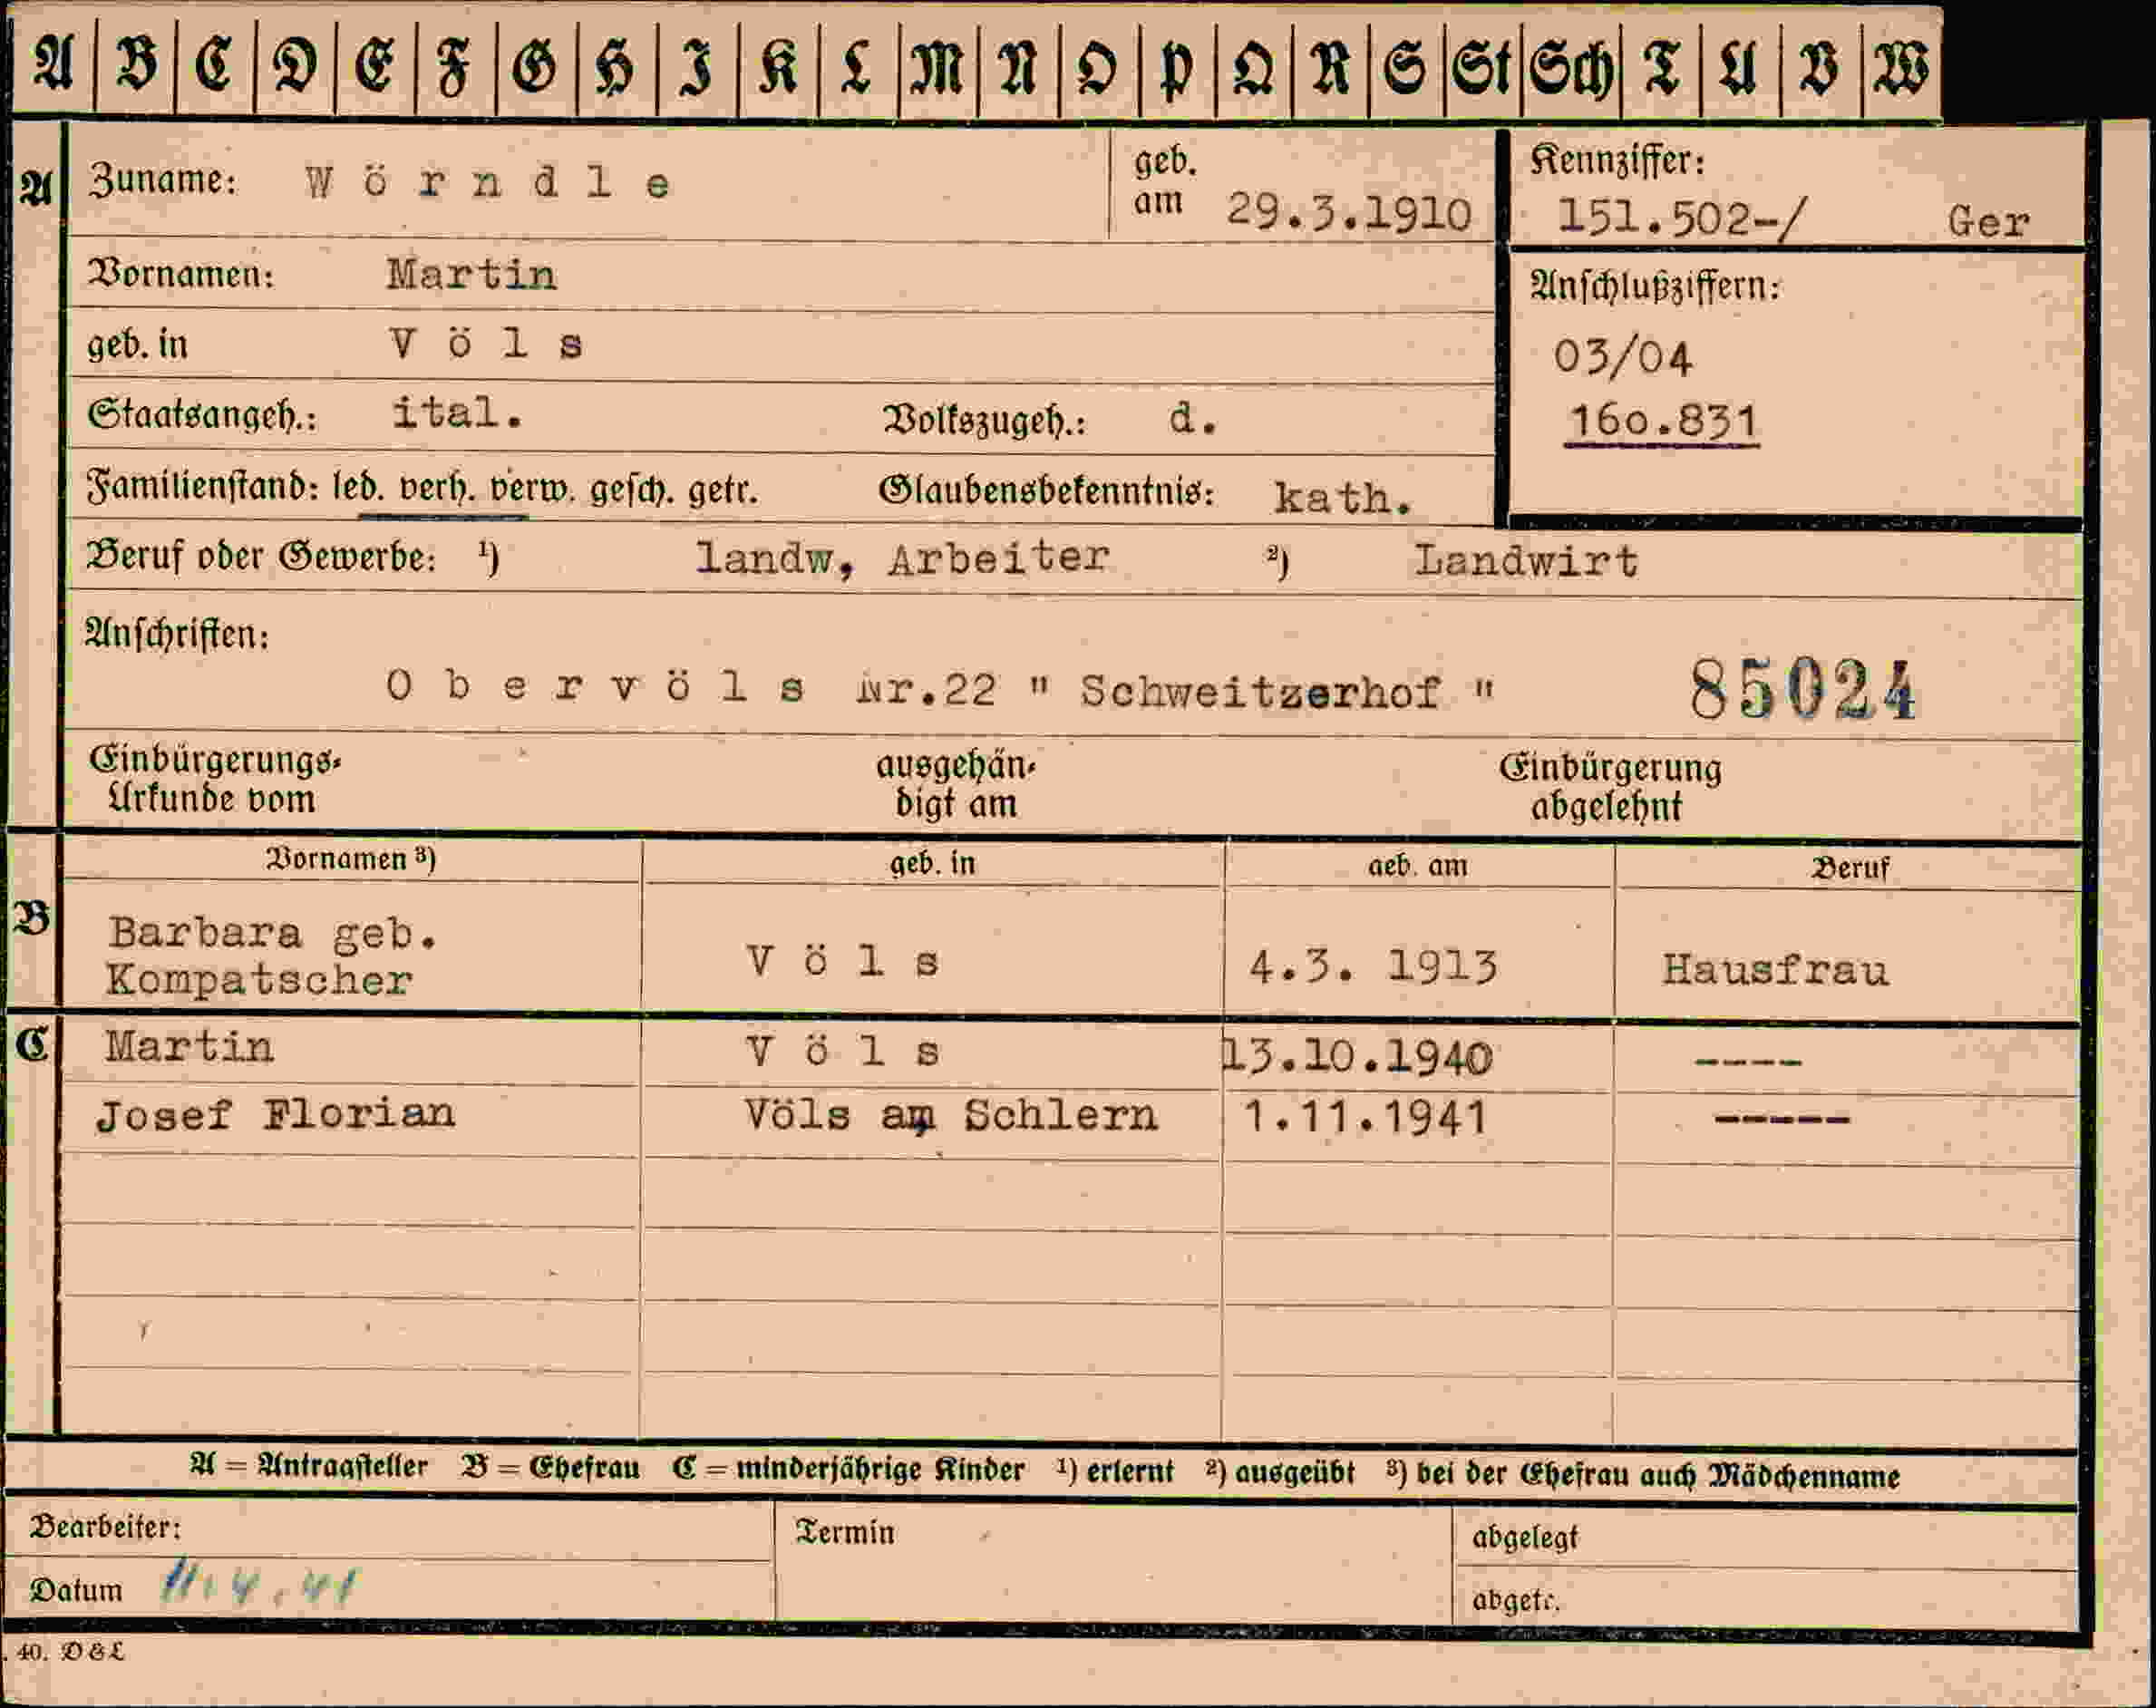 A B C D E F G H I K L M N O P Q R S St Sch T U V W
A Zuname: Wörndle geb. am 29.3.1910 Kennziffer: 151.502-/ Ger
Vornamen: Martin Anschlußziffern:
geb. in Völs 03/04
Staatsangeh.: ital. Volkszugeh.: d. 160.831
Familienstand: led. verh. verw. gesch. getr. Glaubensbekenntnis: kath.
Beruf oder Gewerbe: ¹) landw, Arbeiter ²) Landwirt
Anschriften:
Obervöls Nr.22 " Schweitzerhof " 85024
Einbürgerungs- ausgehän- Einbürgerung
Urkunde vom digt am abgelehnt
Vornamen ³) geb. in geb. am Beruf
B Barbara geb.
Kompatscher Völs 4.3. 1913 Hausfrau
C Martin Völs 13.10.1940 ----
Josef Florian Völs am Schlern 1.11.1941 -----
A = Antragsteller B = Ehefrau C = minderjährige Kinder ¹) erlernt ²) ausgeübt ³) bei der Ehefrau auch Mädchenname
Bearbeiter: Termin abgelegt
Datum 11.4.41 abgetr.
40. D&L